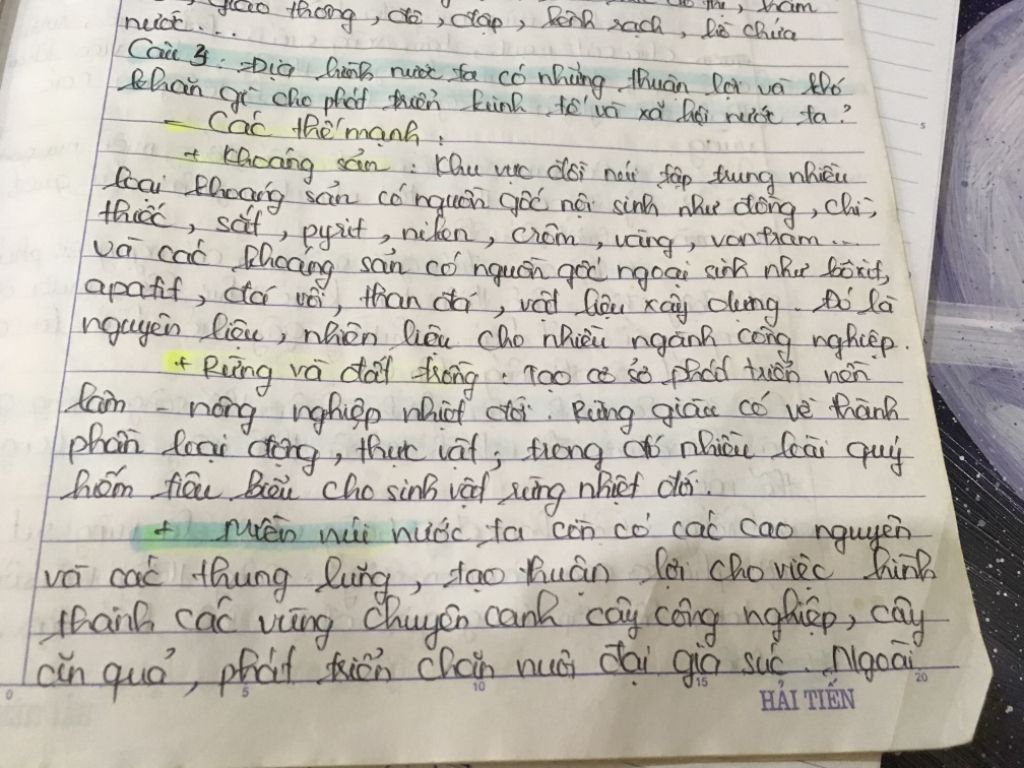 giao thông, đô, đập, kênh rạch, hồ chứa
nước...
Câu 3: Địa hình nước ta có những thuận lợi và khó
khăn gì cho phát triển kinh tế và xã hội nước ta?
- Các thế mạnh:
+ Khoáng sản: Khu vực đồi núi tập trung nhiều
loại khoáng sản có nguồn gốc nội sinh như đồng, chì,
thiếc, sắt, pyrit, niken, crôm, vàng, vonfram...
và các khoáng sản có nguồn gốc ngoại sinh như bôxit,
apatit, đá vôi, than đá, vật liệu xây dựng. Đó là
nguyên liệu, nhiên liệu cho nhiều ngành công nghiệp.
+ Rừng và đất trồng: Tạo cơ sở phát triển nền
lâm - nông nghiệp nhiệt đới. Rừng giàu có về thành
phần loại động, thực vật; trong đó nhiều loài quý
hiếm tiêu biểu cho sinh vật rừng nhiệt đới.
+ Miền núi nước ta còn có các cao nguyên
và các thung lũng, tạo thuận lợi cho việc hình
thành các vùng chuyên canh cây công nghiệp, cây
ăn quả, phát triển chăn nuôi đại gia súc. Ngoài
0 5 10 15 20
HẢI TIẾN